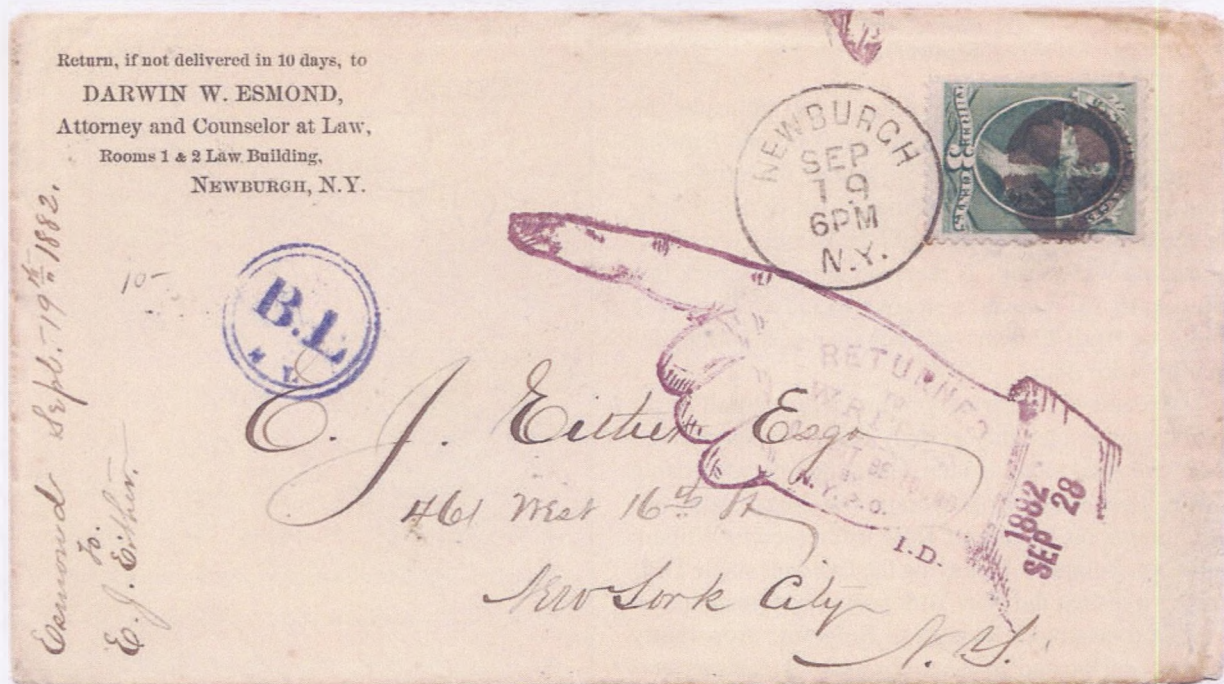 Return, if not delivered in 10 days, to
DARWIN W. ESMOND,
Attorney and Counselor at Law,
Rooms 1 & 2 Law Building,
NEWBURGH, N.Y.
NEWBURGH
SEP
19
6PM
N.Y.
B.L
N.Y.
RETURNED
TO
N.Y.P.O.
I.D.
1882
SEP 28
E. J. Either Esqr
461 West 16th St
New York City
N.Y.
Esmond Sept. 19th 1882.
To.
E. J. Either.
10